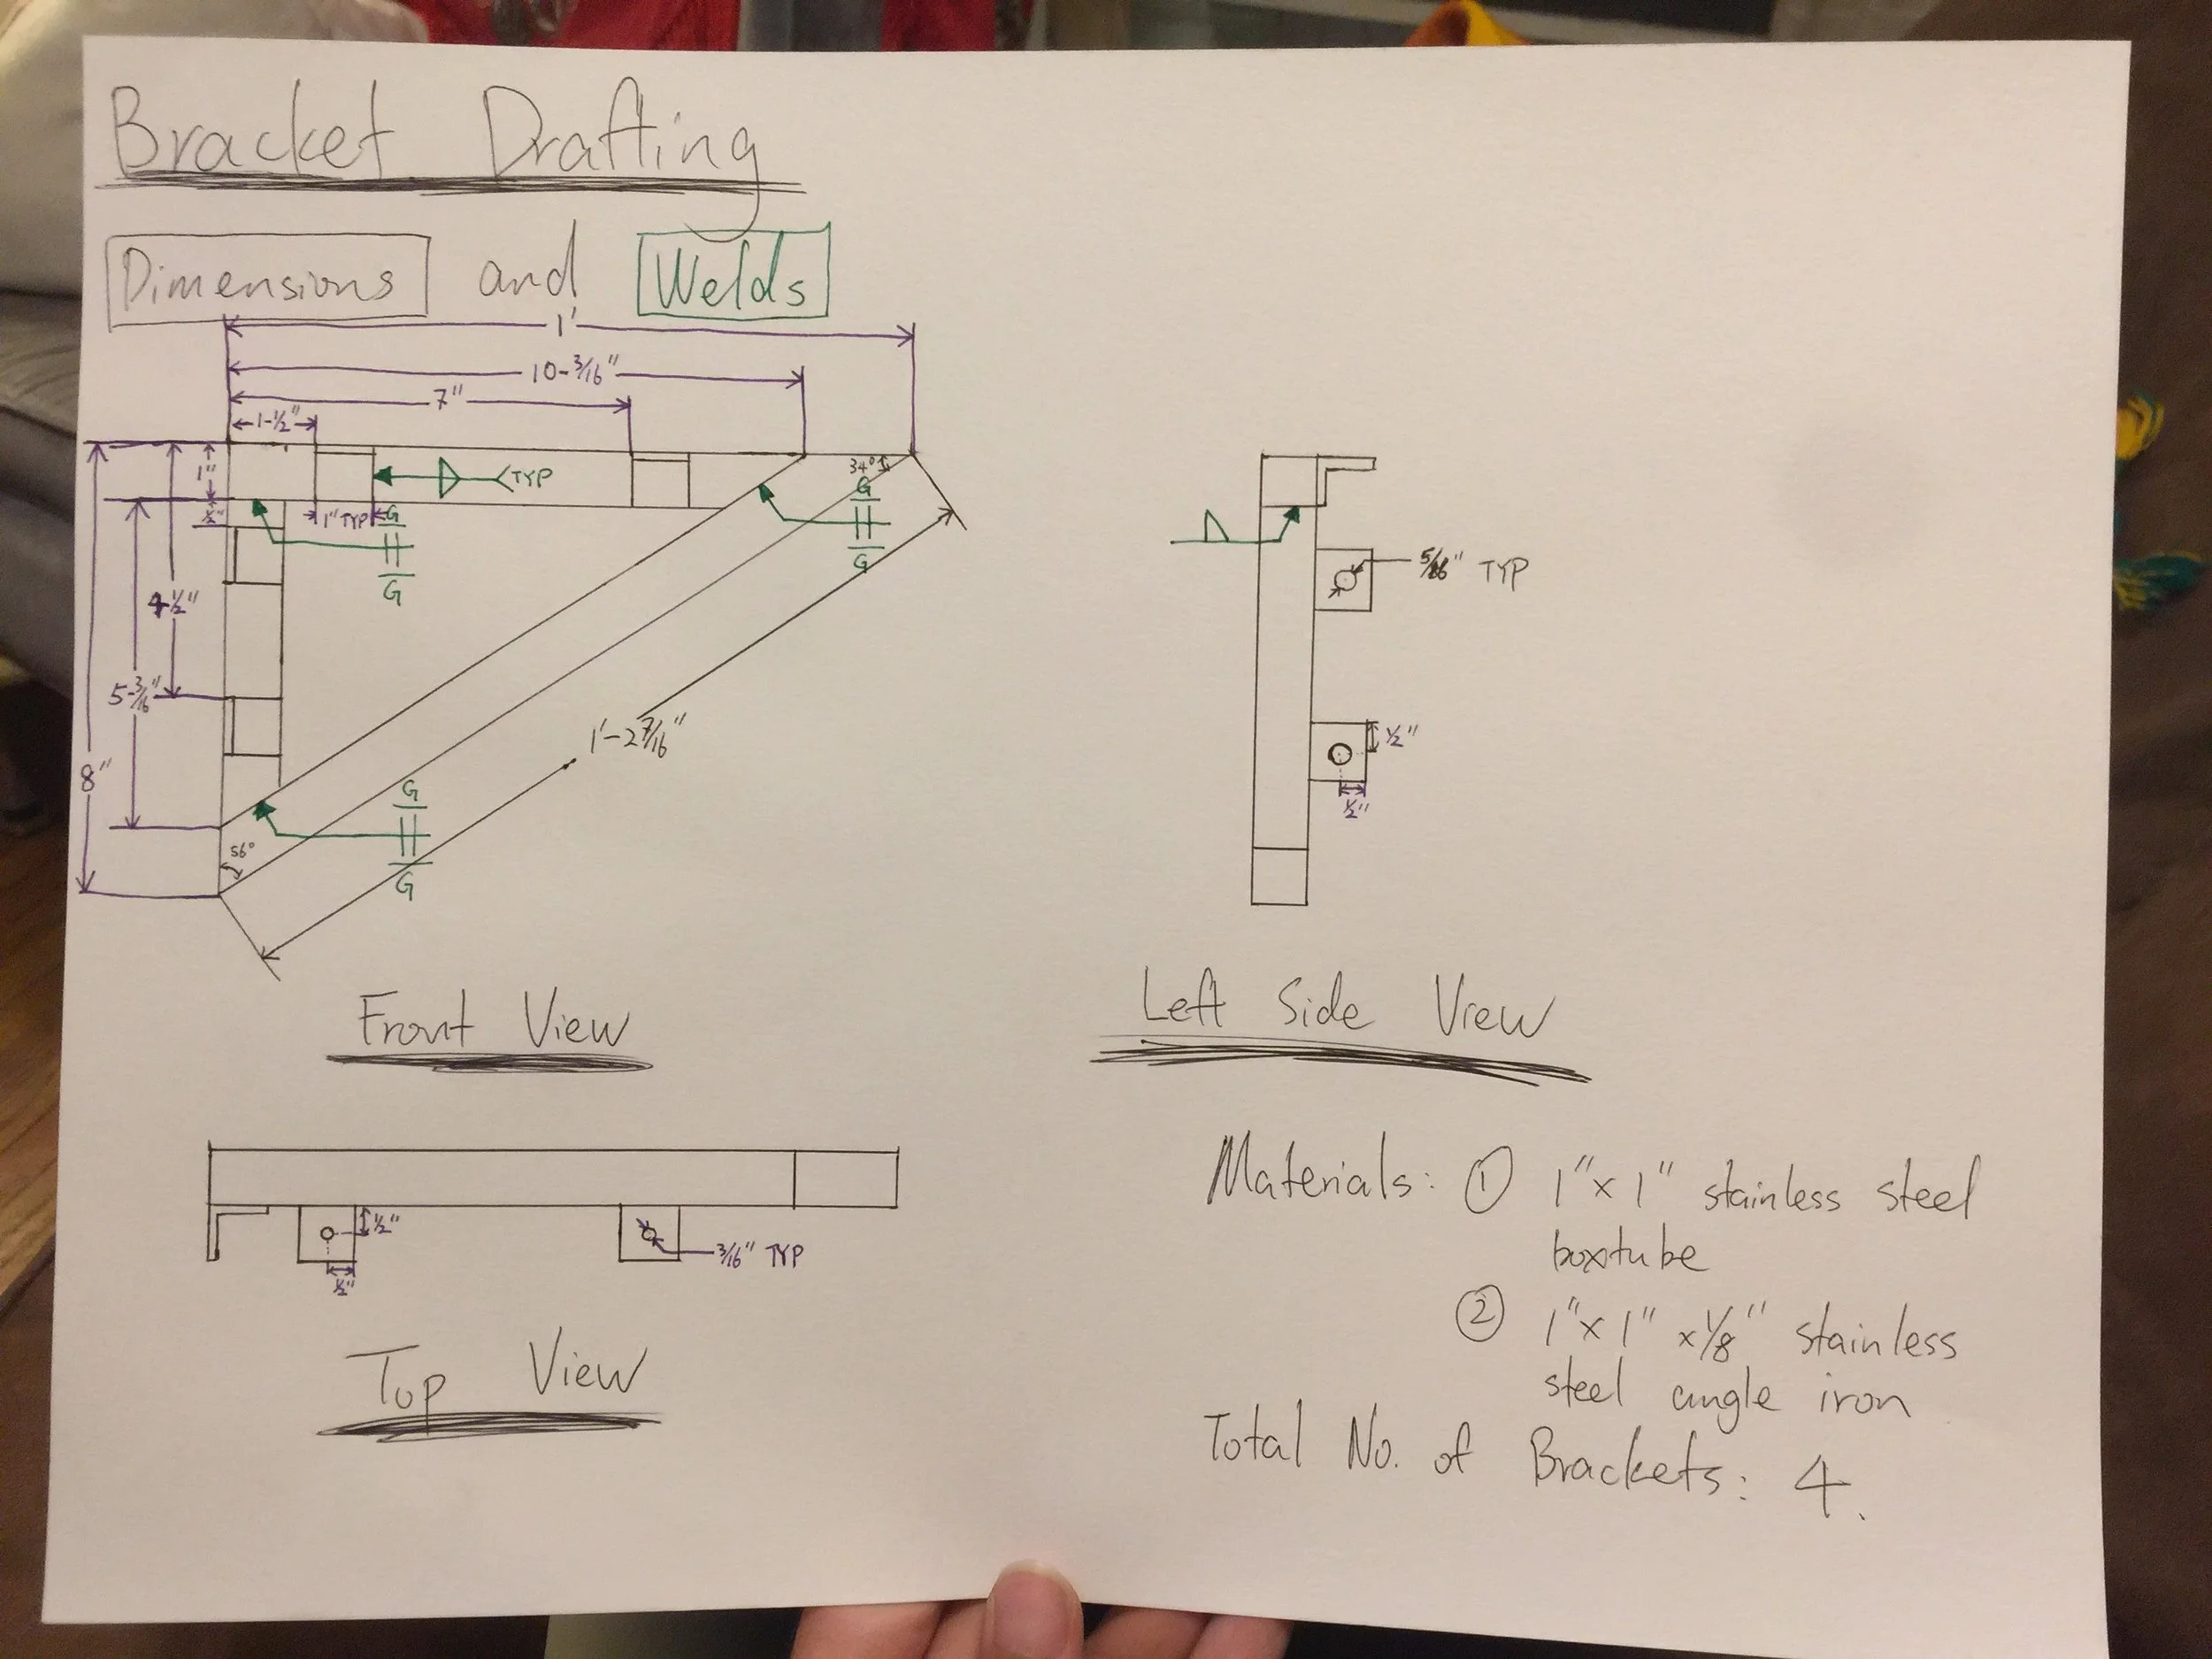 Bracket Drafting
Dimensions and Welds
1'
10-3/16"
7"
1-1/2"
1"
1/2"
1" TYP
TYP
34°
G
G
G
G
4 1/2"
5-3/16"
8"
1'-2 7/16"
56°
G
G
Front View
5/16" TYP
1/2"
1/2"
Left Side View
1/2"
1/2"
3/16" TYP
Top View
Materials: ① 1"x1" stainless steel
boxtube
② 1"x1"x1/8" stainless
steel angle iron
Total No. of Brackets: 4.